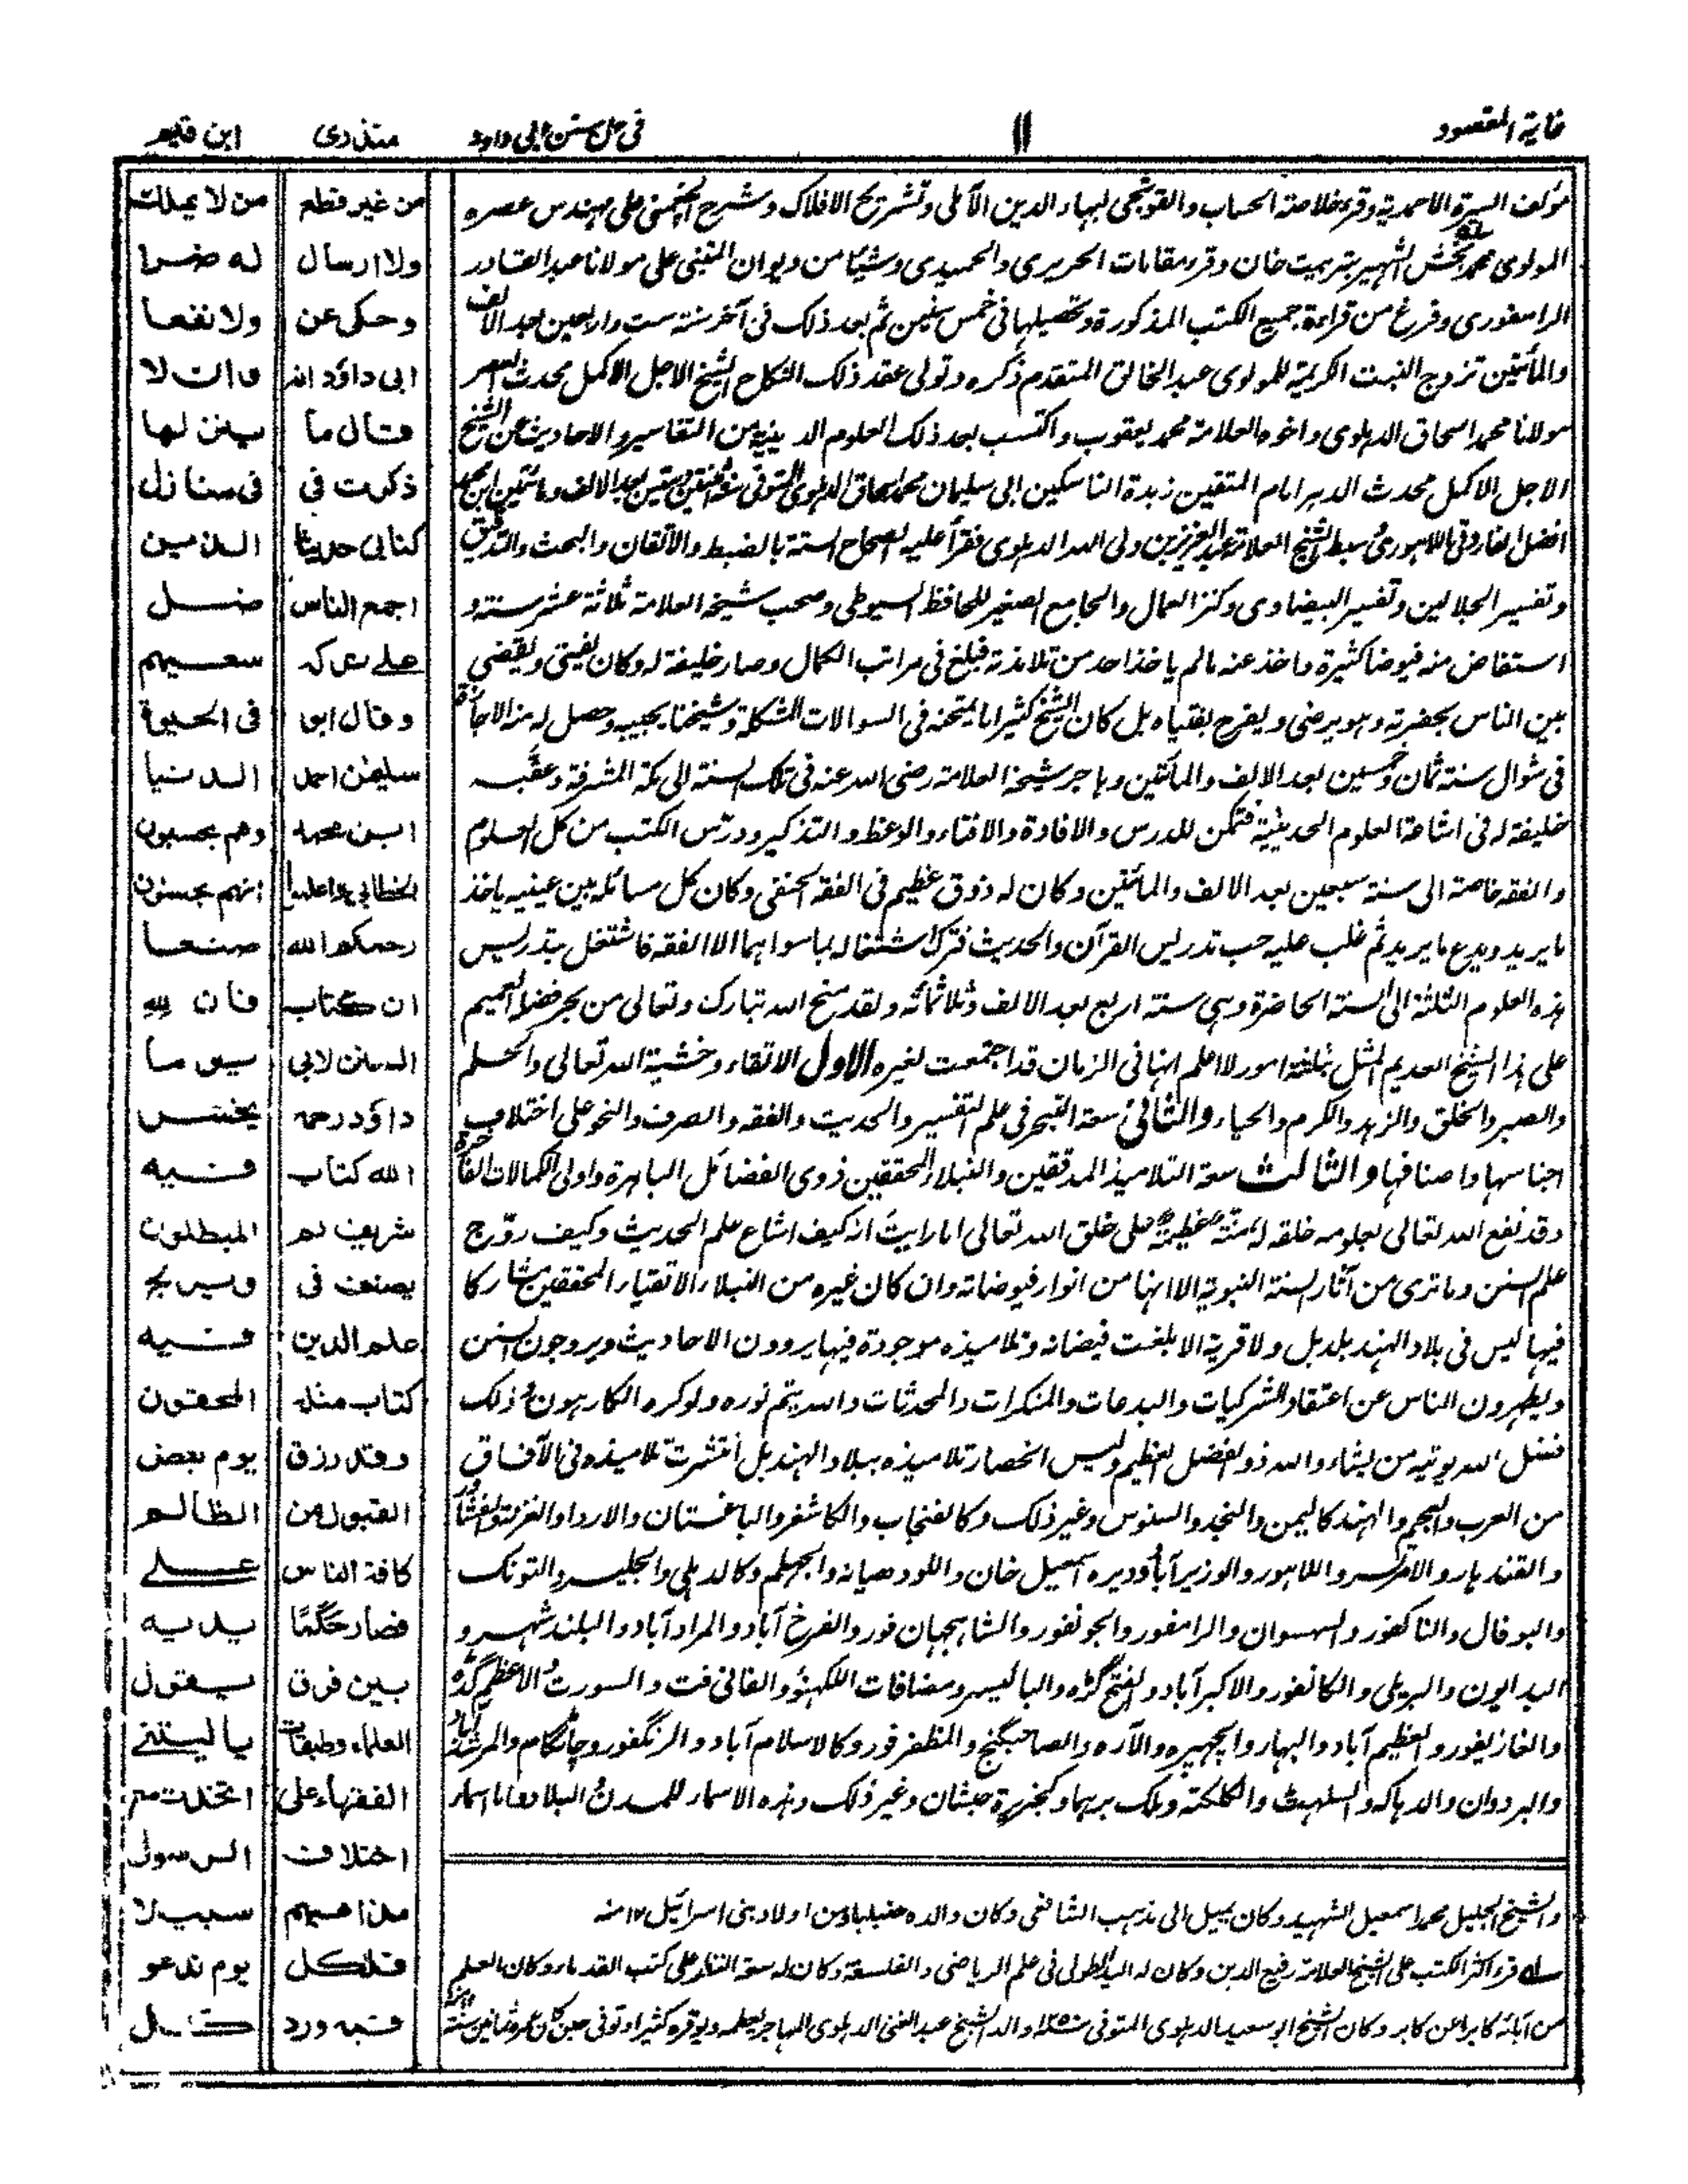 غاية المقصود
١١
في حل سنن ابي داود
منذرى
ابن قيم
مؤلف السيرة الاحمدية وقرء خلاصة الحساب والقوشجى لبهاء الدين الآملى وتشريح الافلاك وشرح الچغمنى على مهندس عصره
المولوى محمد بخش الشهير بتربيت خان وقرء مقامات الحريرى والحميدى وشيئا من ديوان المتنبى على مولانا عبد القادر
الرامفورى وفرغ من قراءة جميع الكتب المذكورة وتحصيلها فى خمس سنين ثم بعد ذلك فى آخر سنة ست واربعين بعد الالف
والمأتين تزوج البنت الكريمة للمولوى عبد الخالق المتقدم ذكره وتولى عقد ذلك النكاح الشيخ الاجل الاكمل محدث العصر
مولانا محمد اسحاق الدهلوى واخوه العلامة محمد يعقوب واكتسب بعد ذلك العلوم الدينية من التفاسير والاحاديث عن الشيخ
الاجل الاكمل محدث الدهر امام المتقين زبدة الناسكين ابى سليمان محمد اسحاق الدهلوى المتوفى سنة اثنتين وستين بعد الالف ومأتين ابن محمد
افضل الفاروقى اللاهورى سبط الشيخ العلامة عبد العزيز بن ولى الله الدهلوى فقرأ عليه الصحاح الستة بالضبط والاتقان والبحث والتدقيق
وتفسير الجلالين وتفسير البيضاوى وكنز العمال والجامع الصغير للحافظ السيوطى وصحب شيخه العلامة ثلاثة عشر سنة و
استفاض منه فيوضا كثيرة واخذ عنه مالم ياخذ احد من تلامذته فبلغ فى مراتب الكمال وصار خليفة له وكان يفتى ويقضى
بين الناس بحضرته وهو يرضى ويفرح بفتياه بل كان الشيخ كثيرا ما يمتحنه فى السوالات المشكلة وشيخنا يجيبه وحصل له منه الاجازة
فى شوال سنة ثمان وخمسين بعد الالف والمأتين وهاجر شيخه العلامة رضى الله عنه فى تلك السنة الى مكة المشرفة وعقبه
خليفة له فى اشاعة العلوم الحديثية فتمكن للدرس والافادة والافتاء والوعظ والتذكير ودرس الكتب من كل العلوم
والفقه خاصة الى سنة سبعين بعد الالف والمأتين وكان له ذوق عظيم فى الفقه الحنفى وكان كل مسائله بين عينيه ياخذ
ما يريد ويدع ما يريد ثم غلب عليه حب تدريس القرآن والحديث فترك اشتغاله بما سواهما الا الفقه فاشتغل بتدريس
هذه العلوم الثلثة الى السنة الحاضرة وهى سنة اربع بعد الالف وثلاثمائة ولقد منح الله تبارك وتعالى من بحر فضله العميم
على هذا الشيخ العديم المثل ثلثة امور لا اعلم انها فى الزمان قد اجتمعت لغيره الاول الاتقاء وخشية الله تعالى والحلم
والصبر والخلق والزهد والكرم والحياء والثانى سعة التبحر فى علم التفسير والحديث والفقه والصرف والنحو على اختلاف
اجناسها واصنافها والثالث سعة التلاميذ المدققين والنبلاء المحققين ذوى الفضائل الباهرة واولى الكمالات الفاخرة
وقد نفع الله تعالى بعلومه خلقه له منة عظيمة على خلق الله تعالى اما رايت انه كيف اشاع علم الحديث وكيف روّج
علم السنن وما ترى من آثار السنة النبوية الا انها من انوار فيوضاته وان كان غيره من النبلاء الاتقياء المحققين مشاركا
فيها ليس فى بلاد الهند بلد بل ولا قرية الا بلغت فيضانه وتلاميذه موجودة فيها يروون الاحاديث ويروجون السنن
ويطهرون الناس عن اعتقاد الشركيات والبدعات والمنكرات والمحدثات والله يتم نوره ولو كره الكارهون ذلك
فضل الله يوتيه من يشاء والله ذو الفضل العظيم وليس انحصار تلاميذه ببلاد الهند بل انتشرت تلاميذه فى الآفاق
من العرب والعجم والهند كاليمن والنجد والسنوس وغير ذلك وكالفنجاب والكاشغر والباغستان والاردا والغزنة
والقندهار والامرتسر واللاهور والوزير آباد وديره اسمعيل خان واللودهيانه والجهلم وكالدهلى والجليسر والتونك
والبوفال والناكفور والسهسوان والرامفور والجونفور والشاهجهان فور والفرخ آباد والمراد آباد والبلند شهر و
البدايون والبريلى والكانفور والاكبر آباد والفتح گڑه والباليسر ومضافات اللكهنؤ والفانى فت والسورت والاعظم گڑه
والغازيفور والعظيم آباد والبهار والچهپره والآره والصاحبگنج والمظفر فور وكالاسلام آباد والرنگفور وچاٹگام والمرشد آباد
والبردوان والدهاكه والسلهٹ والكلكته وملك برهما وكجزيرة حبشان وغير ذلك وهذه الاسماء للمدن البلاد فاما اسماء
والشيخ الجليل محمد اسمعيل الشهيد وكان يميل الى مذهب الشافعى وكان والده حنبليا ومن اولاد بنى اسرائيل ١٢ منه
سله قرء اكثر الكتب على الشيخ العلامة رفيع الدين وكان له اليد الطولى فى علم الرياضى والفلسفة وكان له سعة النظر على كتب القدماء وكان العلم
من آبائه كابرا عن كابر وكان الشيخ ابو سعيد الدهلوى المتوفى والد الشيخ عبد الغنى الدهلوى المهاجر يعلمه ويوقره كثيرا وتوفى حين كان عمره ثمانين سنة
من غير قطع
ولا ارسال
وحكى عن
ابى داؤد انه
قال ما
ذكرت فى
كتابى حديثا
اجمع الناس
على تركه
وقال ابو
سليمن احمد
ابن محمد
الخطابى واعلموا
رحمكم الله
ان كتاب
السنن لابى
داؤد رحمه
الله كتاب
شريف لم
يصنف فى
علم الدين
كتاب مثله
وقد رزق
القبول من
كافة الناس
فصار حَكَمًا
بين فرق
العلماء وطبقات
الفقهاء على
اختلاف
مذاهبهم
فلكل
فيه ورد
من لا يملك
له ضرا
ولا نفعا
وانت لا
يبنن لها
فى منازل
الذين
ضل
سعيهم
فى الحيوة
الدنيا
وهم يحسبون
انهم يحسنون
صنعا
فان لله
يوما
يخسر
فيه
المبطلون
ويربح
فيه
المحقون
يوم يعض
الظالم
على
يديه
يقول
يا ليتنى
اتخذت مع
الرسول
سبيلا
يوم ندعو
كل